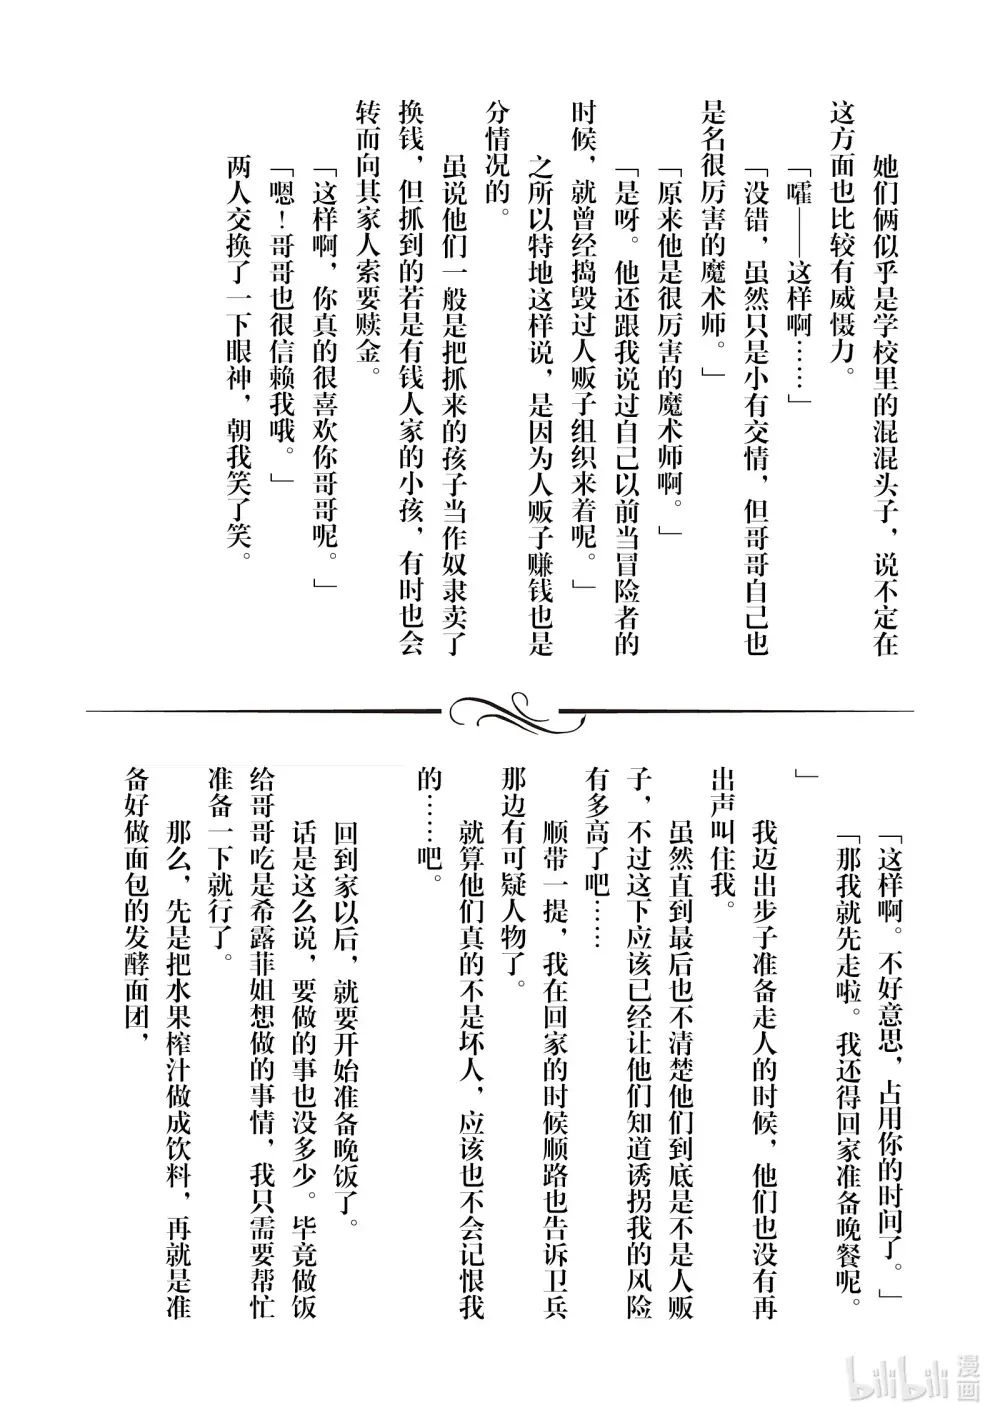 她们俩似乎是学校里的混混头子，说不定在
这方面也比较有威慑力。
「嚯——这样啊……」
「没错，虽然只是小有交情，但哥哥自己也
是名很厉害的魔术师。」
「原来他是很厉害的魔术师啊。」
「是呀。他还跟我说过自己以前当冒险者的
时候，就曾经捣毁过人贩子组织来着呢。」
之所以特地这样说，是因为人贩子赚钱也是
分情况的。
虽说他们一般是把抓来的孩子当作奴隶卖了
换钱，但抓到的若是有钱人家的小孩，有时也会
转而向其家人索要赎金。
「这样啊，你真的很喜欢你哥哥呢。」
「嗯！哥哥也很信赖我哦。」
两人交换了一下眼神，朝我笑了笑。
「这样啊。不好意思，占用你的时间了。」
「那我就先走啦。我还得回家准备晚餐呢。
」
我迈出步子准备走人的时候，他们也没有再
出声叫住我。
虽然直到最后也不清楚他们到底是不是人贩
子，不过这下应该已经让他们知道诱拐我的风险
有多高了吧……
顺带一提，我在回家的时候顺路也告诉卫兵
那边有可疑人物了。
就算他们真的不是坏人，应该也不会记恨我
的……吧。
回到家以后，就要开始准备晚饭了。
话是这么说，要做的事也没多少。毕竟做饭
给哥哥吃是希露菲姐想做的事情，我只需要帮忙
准备一下就行了。
那么，先是把水果榨汁做成饮料，再就是准
备好做面包的发酵面团，
bilibili 漫画